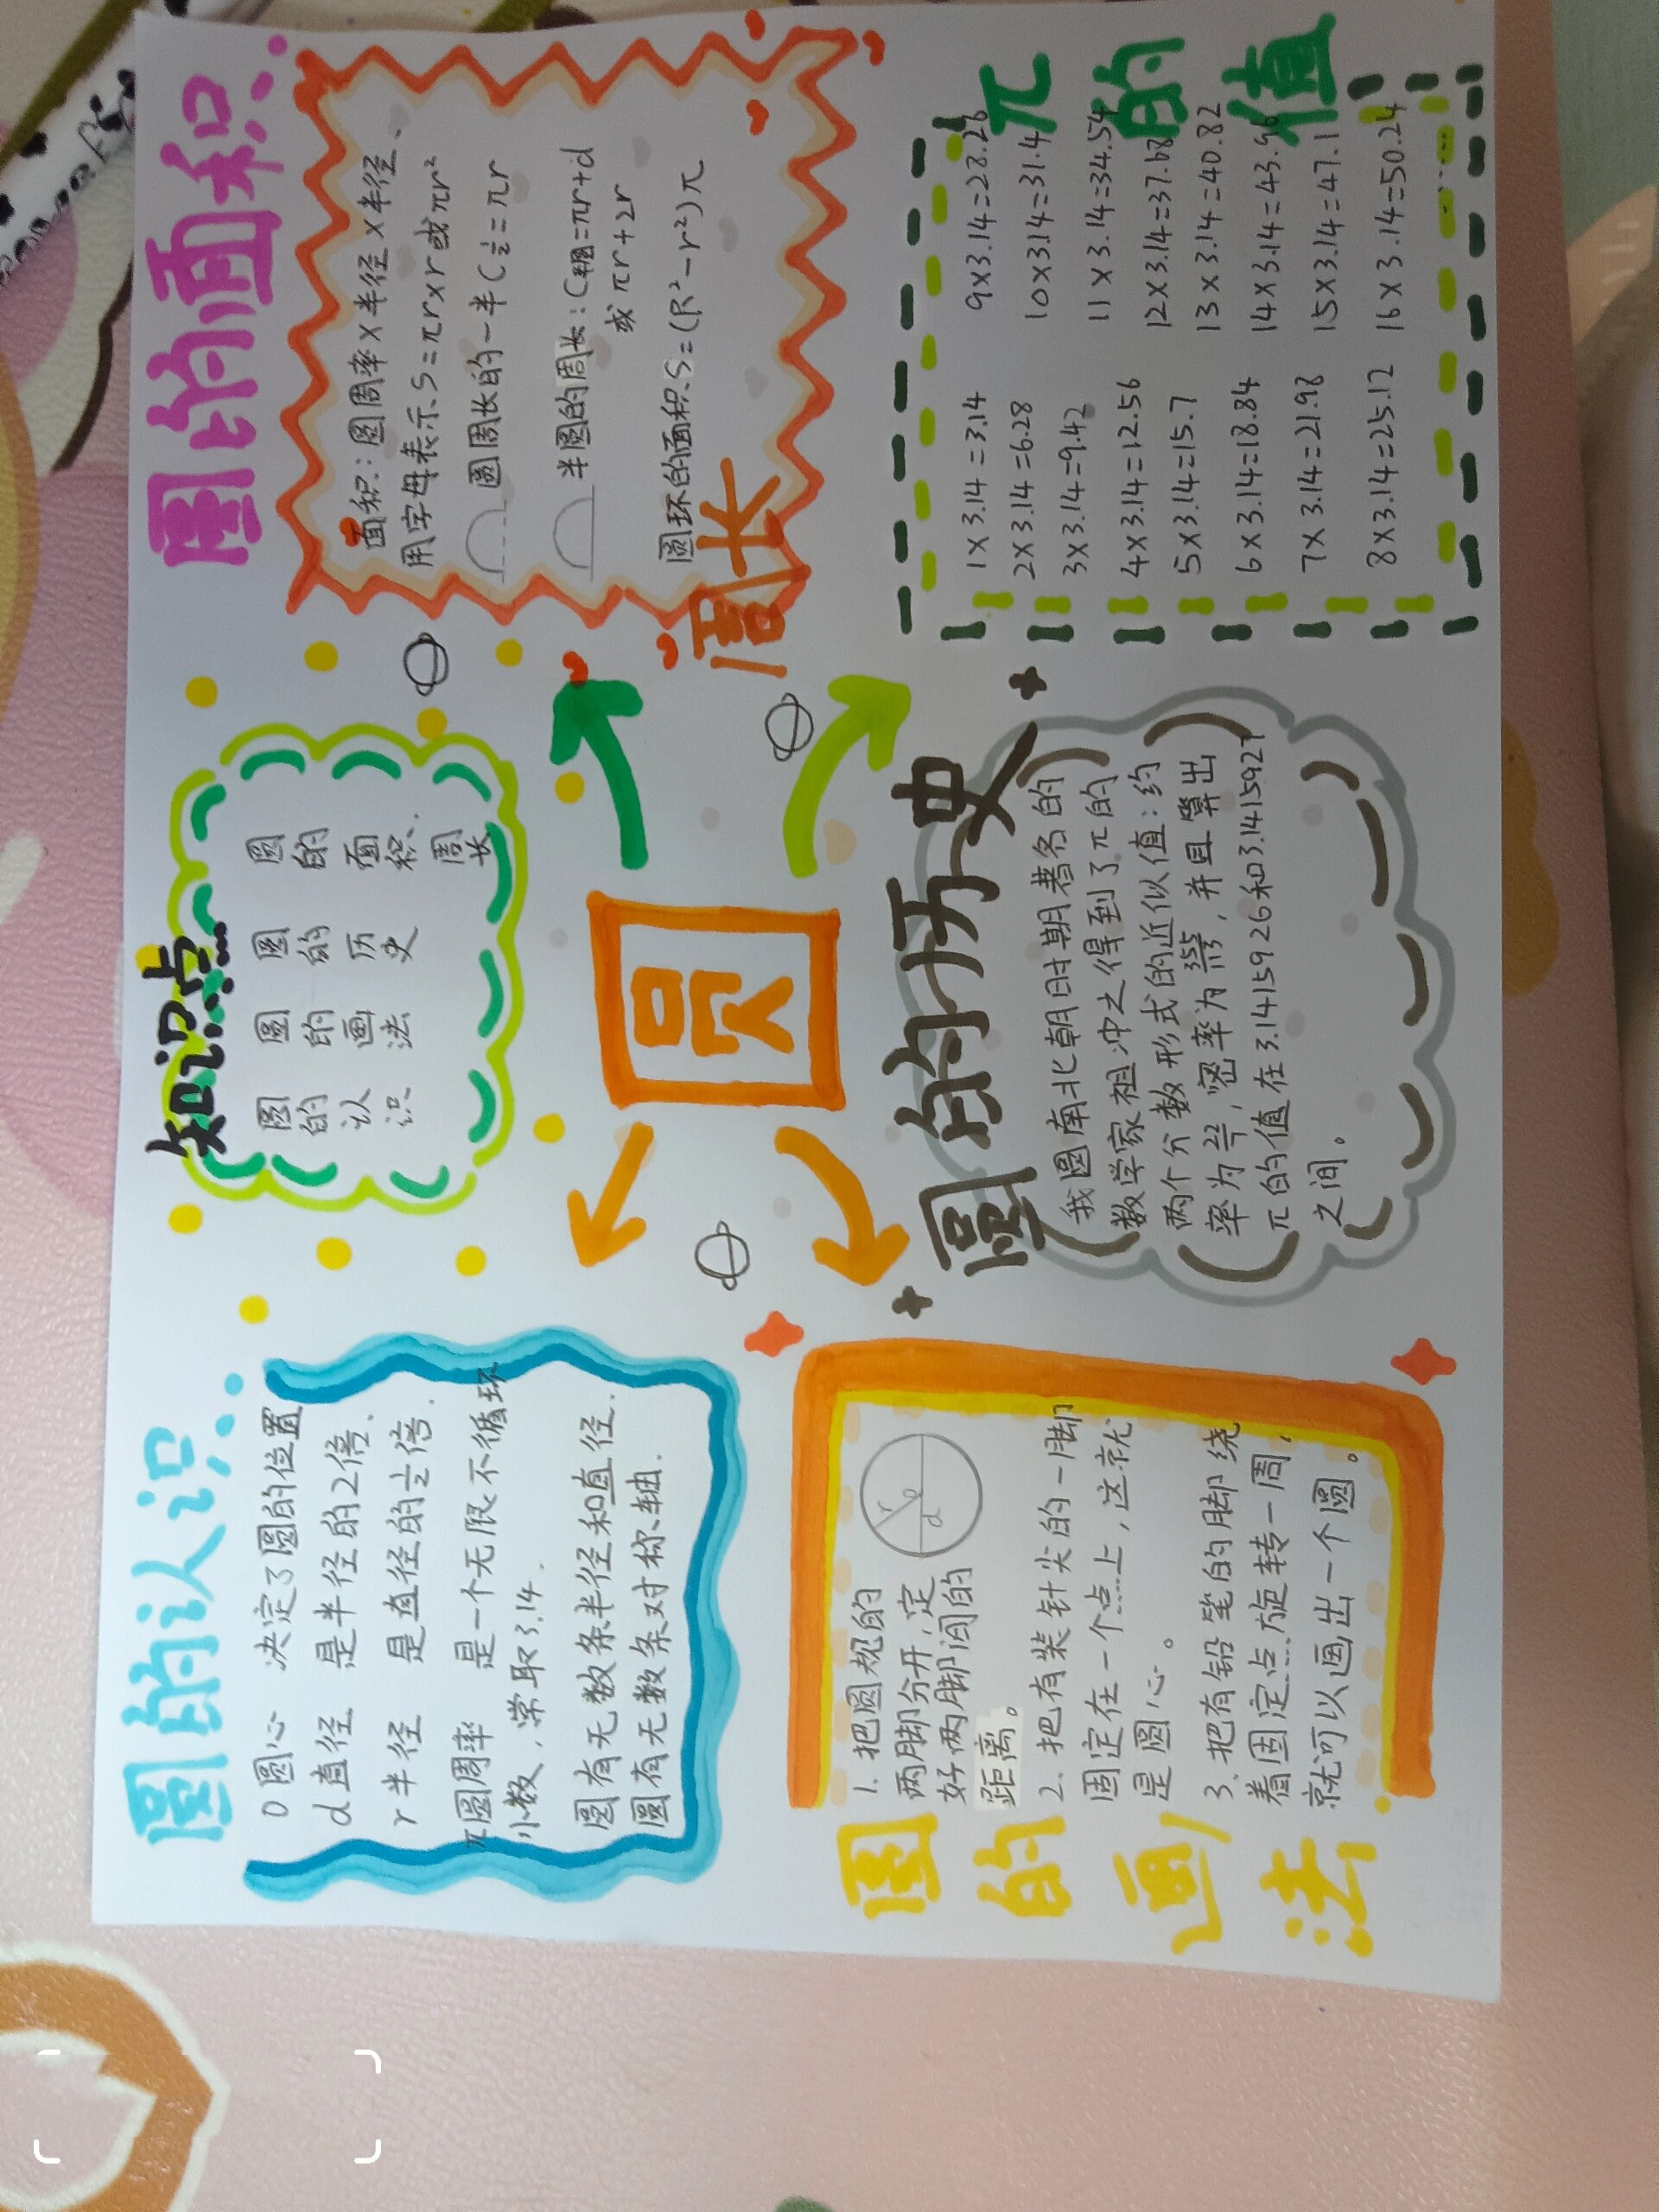 圆的认识
O 圆心 决定了圆的位置
d 直径 是半径的2倍.
r 半径 是直径的½倍.
π圆周率 是一个无限不循环
小数,常取3.14.
圆有无数条半径和直径.
圆有无数条对称轴.
知识点
圆的认识
圆的画法
圆的历史
圆的面积.
周长
圆的面积
周长
面积:圆周率×半径×半径、
用字母表示S=πr×r或πr²
圆周长的一半C½=πr
半圆的周长:C半圆=πr+d
或πr+2r
圆环的面积S=(R²-r²)π
圆
圆的画法
1. 把圆规的
两脚分开,定
好两脚间的
距离。
2. 把有装针尖的一脚
固定在一个点上,这就
是圆心。
3. 把有铅笔的脚绕
着固定点旋转一周,
就可以画出一个圆。
r
o
d
圆的历史
我圆南北朝时期著名的
数学家祖冲之得到了π的
两个分数形式的近似值:约
率为22/7,密率为355/113,并且算出
π的值在3.1415926和3.1415927
之间。
π的值
1×3.14=3.14
2×3.14=6.28
3×3.14=9.42
4×3.14=12.56
5×3.14=15.7
6×3.14=18.84
7×3.14=21.98
8×3.14=25.12
9×3.14=28.26
10×3.14=31.4
11×3.14=34.54
12×3.14=37.68
13×3.14=40.82
14×3.14=43.96
15×3.14=47.1
16×3.14=50.24